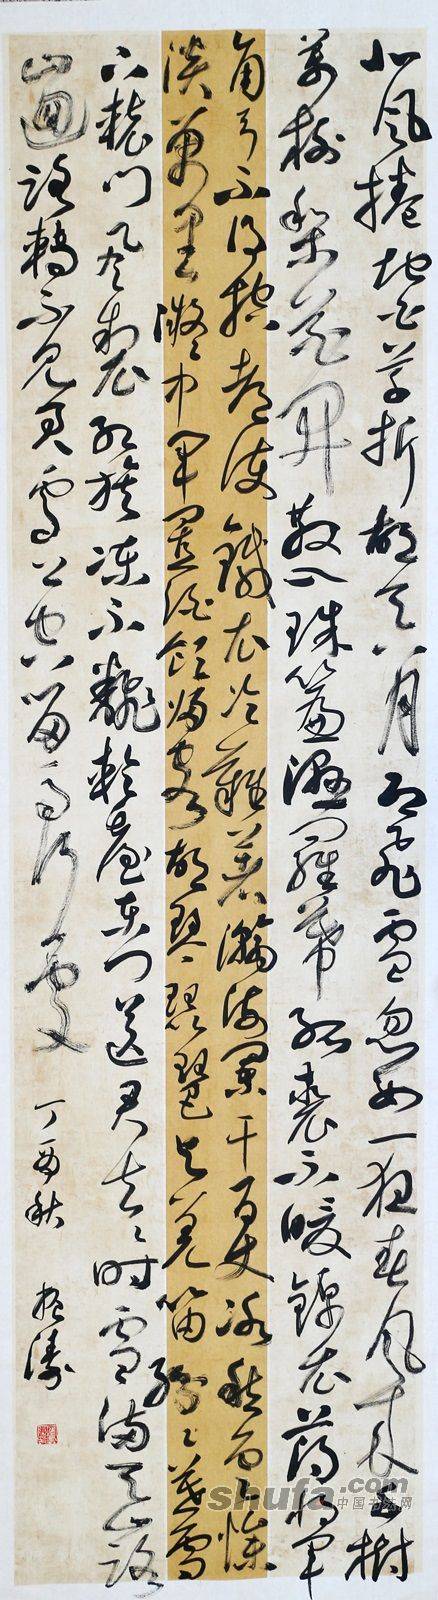 北風捲地白草折胡天八月即飛雪忽如一夜春風來千樹
萬樹梨花開散入珠簾濕羅幕狐裘不暖錦衾薄將軍
角弓不得控都護鐵衣冷難著瀚海闌干百丈冰愁雲慘
淡萬里凝中軍置酒飲歸客胡琴琵琶與羌笛紛紛暮雪
下轅門風掣紅旗凍不翻輪臺東門送君去去時雪滿天山路
山迴路轉不見君雪上空留馬行處
丁酉秋
濤
shufa.com
中国书法网